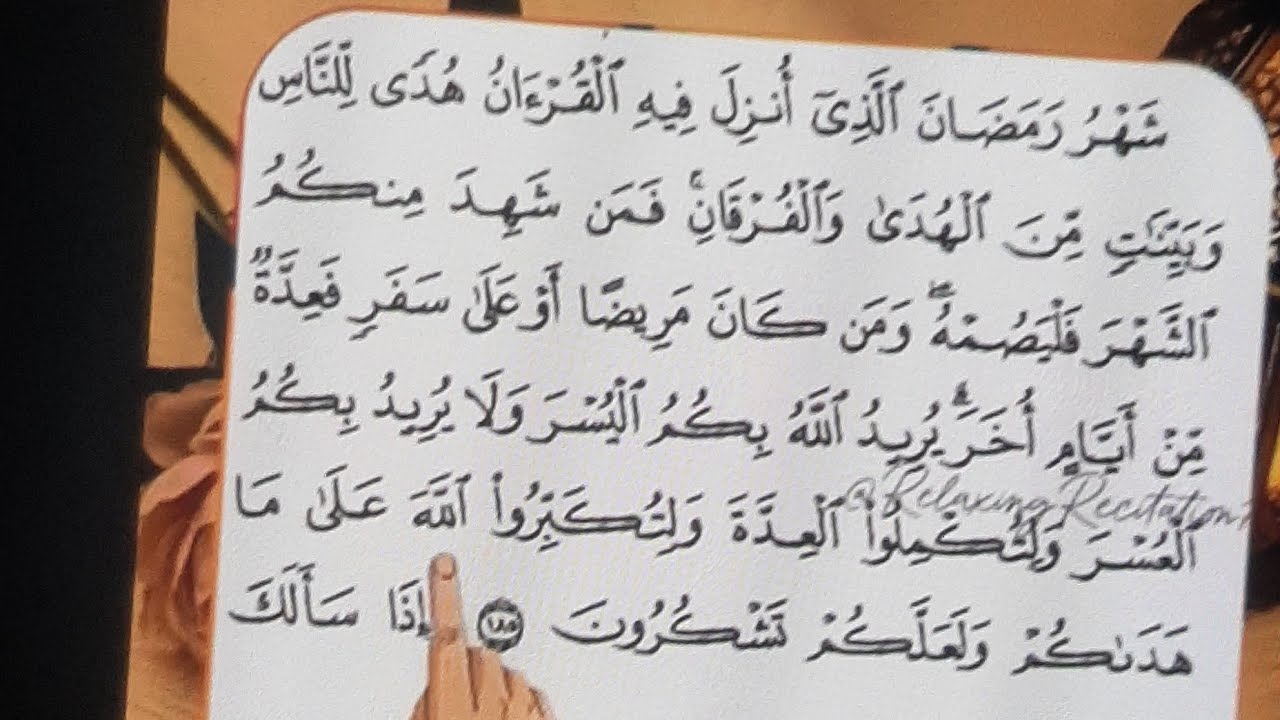 شَهْرُ رَمَضَانَ ٱلَّذِىٓ أُنزِلَ فِيهِ ٱلْقُرْءَانُ هُدًى لِّلنَّاسِ
وَبَيِّنَٰتٍ مِّنَ ٱلْهُدَىٰ وَٱلْفُرْقَانِۚ فَمَن شَهِدَ مِنكُمُ
ٱلشَّهْرَ فَلْيَصُمْهُۖ وَمَن كَانَ مَرِيضًا أَوْ عَلَىٰ سَفَرٍ فَعِدَّةٌ
مِّنْ أَيَّامٍ أُخَرَۗ يُرِيدُ ٱللَّهُ بِكُمُ ٱلْيُسْرَ وَلَا يُرِيدُ بِكُمُ
@RelaxingRecitation
ٱلْعُسْرَ وَلِتُكْمِلُوا۟ ٱلْعِدَّةَ وَلِتُكَبِّرُوا۟ ٱللَّهَ عَلَىٰ مَا
هَدَىٰكُمْ وَلَعَلَّكُمْ تَشْكُرُونَ ١٨٥ إِذَا سَأَلَكَ